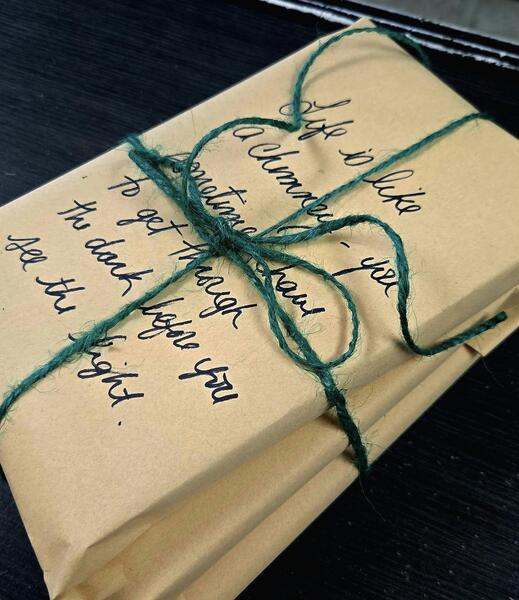 Life is like
a chimney - you
sometimes have
to get through
the dark before you
see the light.